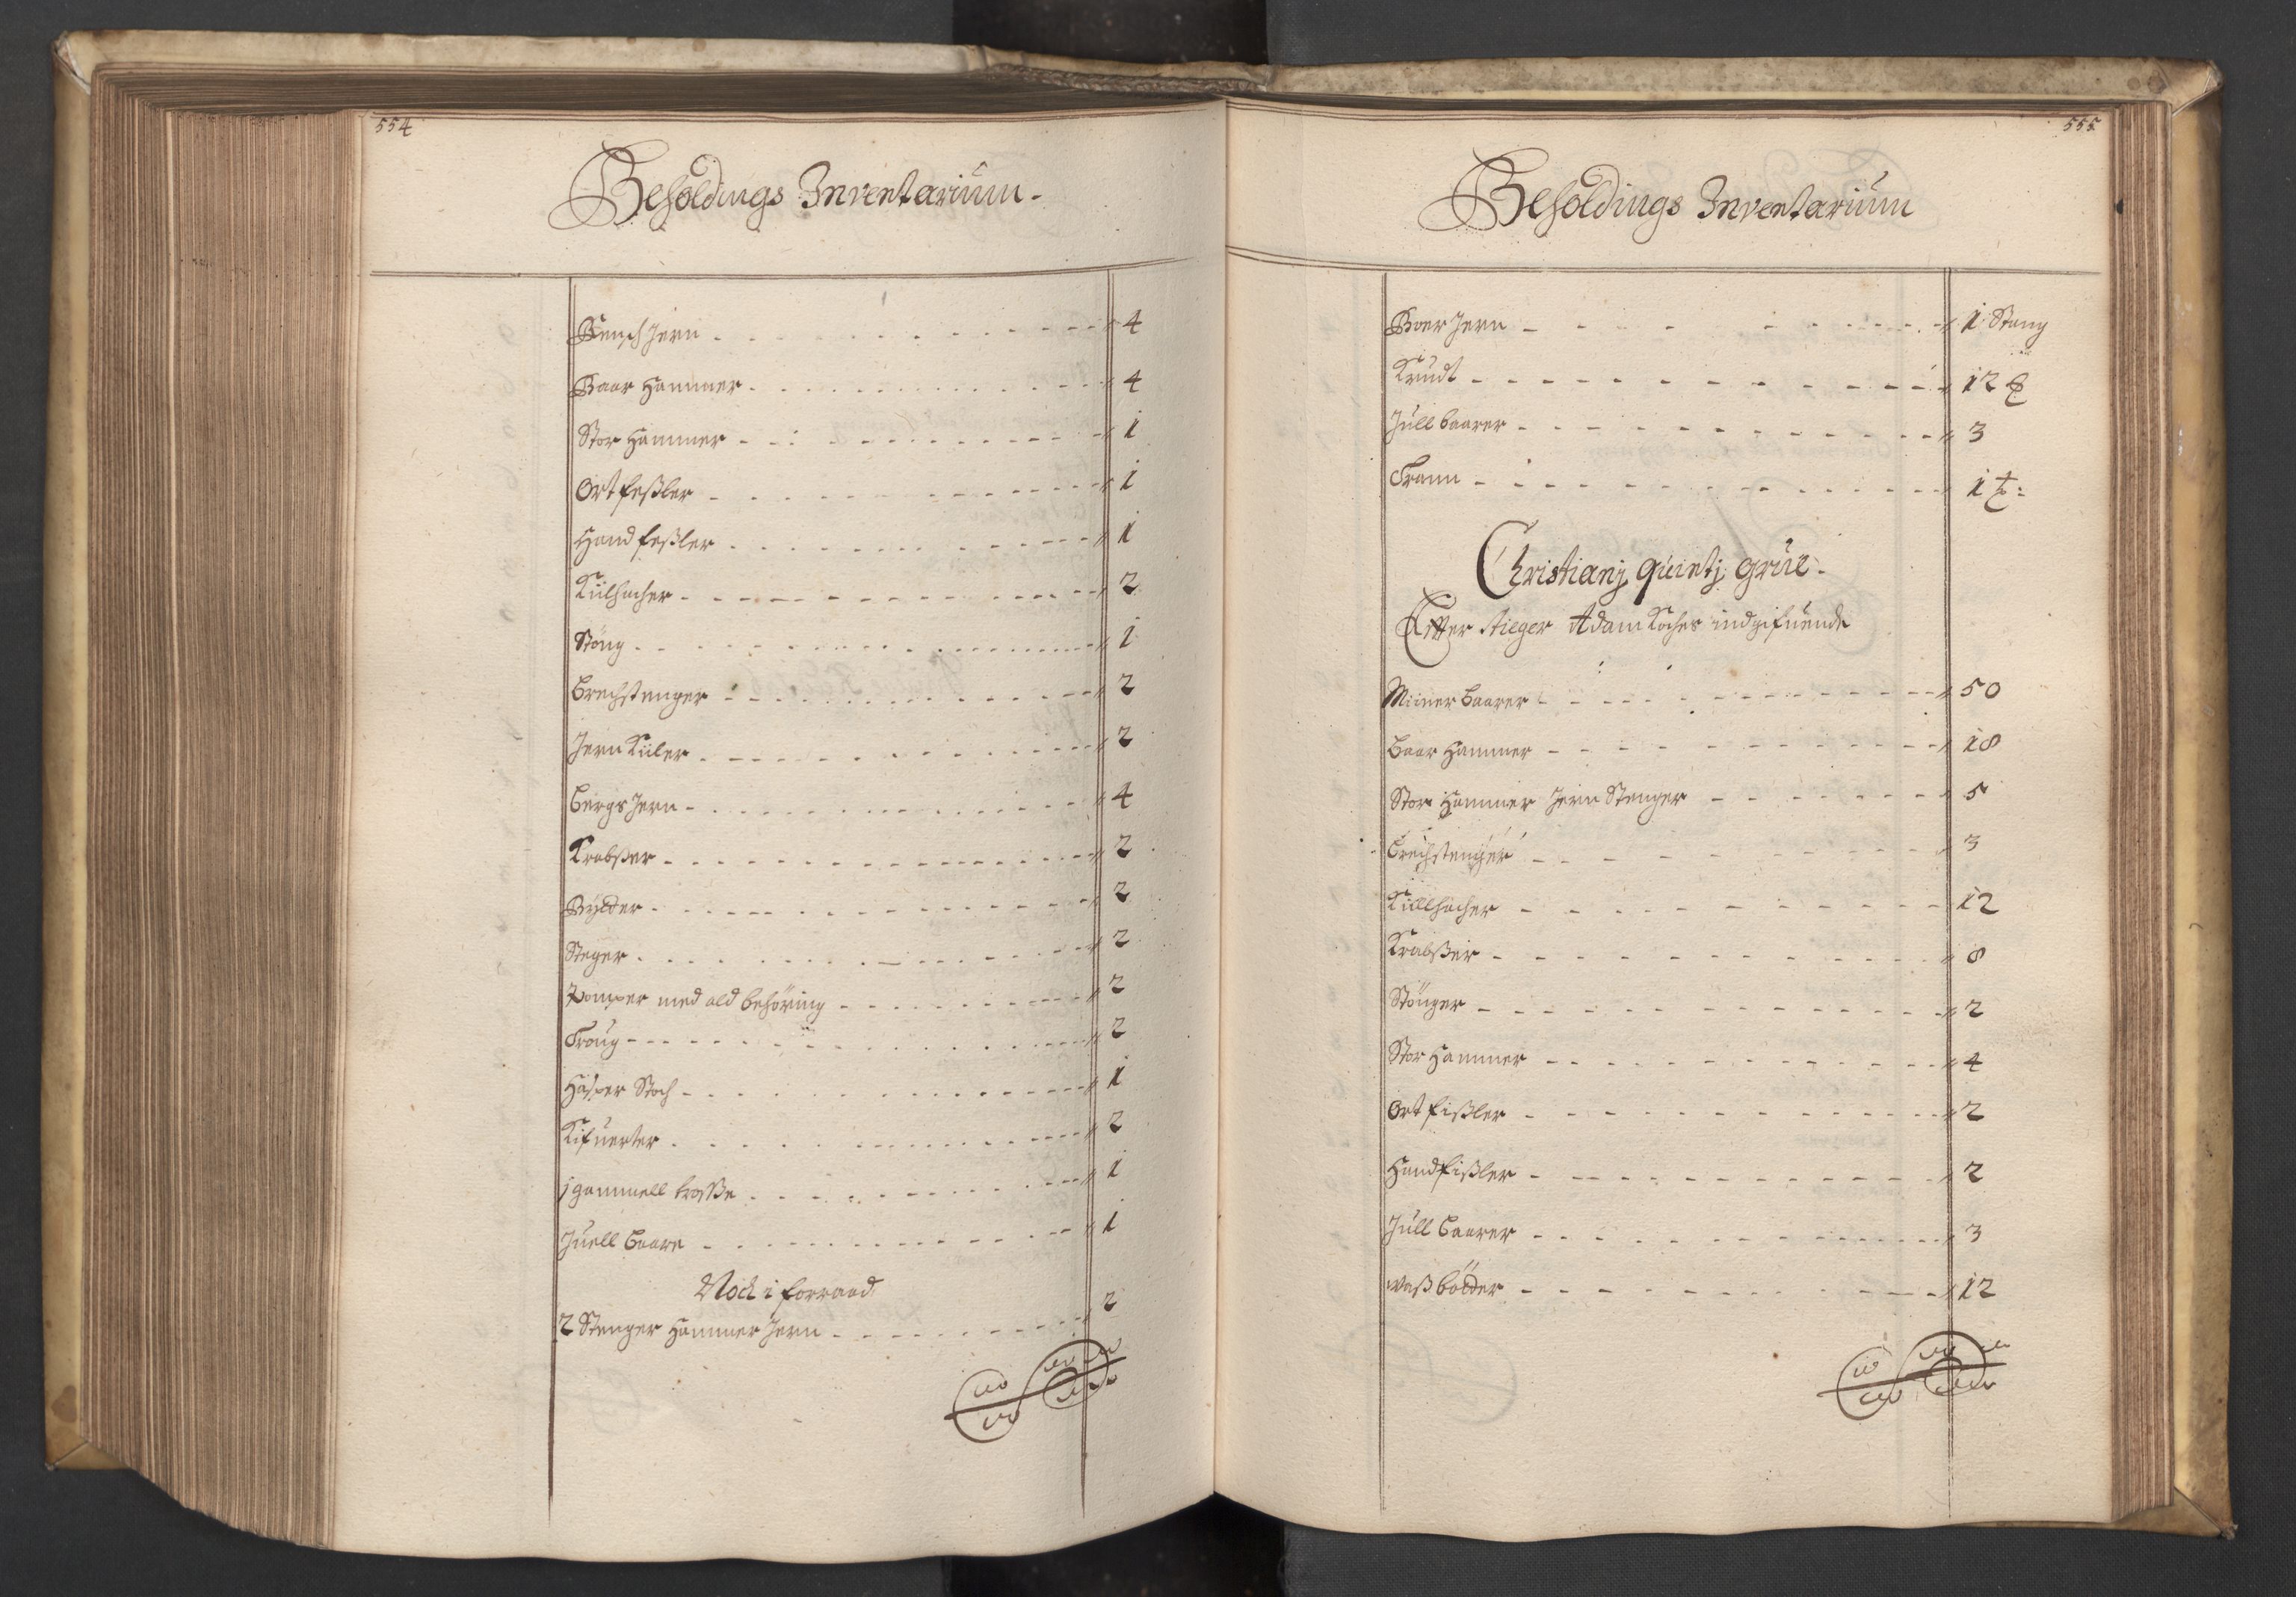 554
Beholdings Inventarium.
Bench Jern 4
Baar Hammer 4
Stor Hammer 1
Ort feßler 1
Hand feßler 1
Kiilhacher 2
Stöng 1
Brechstenger 2
Jern Kiiler 2
Bergs Jern 4
Krabßer 2
Bÿtter 2
Steger 2
Pomper med ald behöring 2
Troug 2
Hasper Stoch 1
Kifuerter 2
j gammell troße 1
Juell Baare 1
Noch i forraad
2 Stenger Hammer Jern 2
555
Beholdings Inventarium
Boer Jern 1 Stang
Krudt 12 ℔
Jull baarer 3
Trann 1
Christianj quintj grue.
Efter stieger Adam Koches indgifuende
Miiner Baarer 50
Baar Hammer 18
Stor Hammer Jern Stenger 5
Brechstenger 3
Kiillhacher 12
Krabßer 8
Stönger 2
Stor Hammer 4
Ort fißler 2
Hand fißler 2
Jull Baarer 3
waß bötter 12